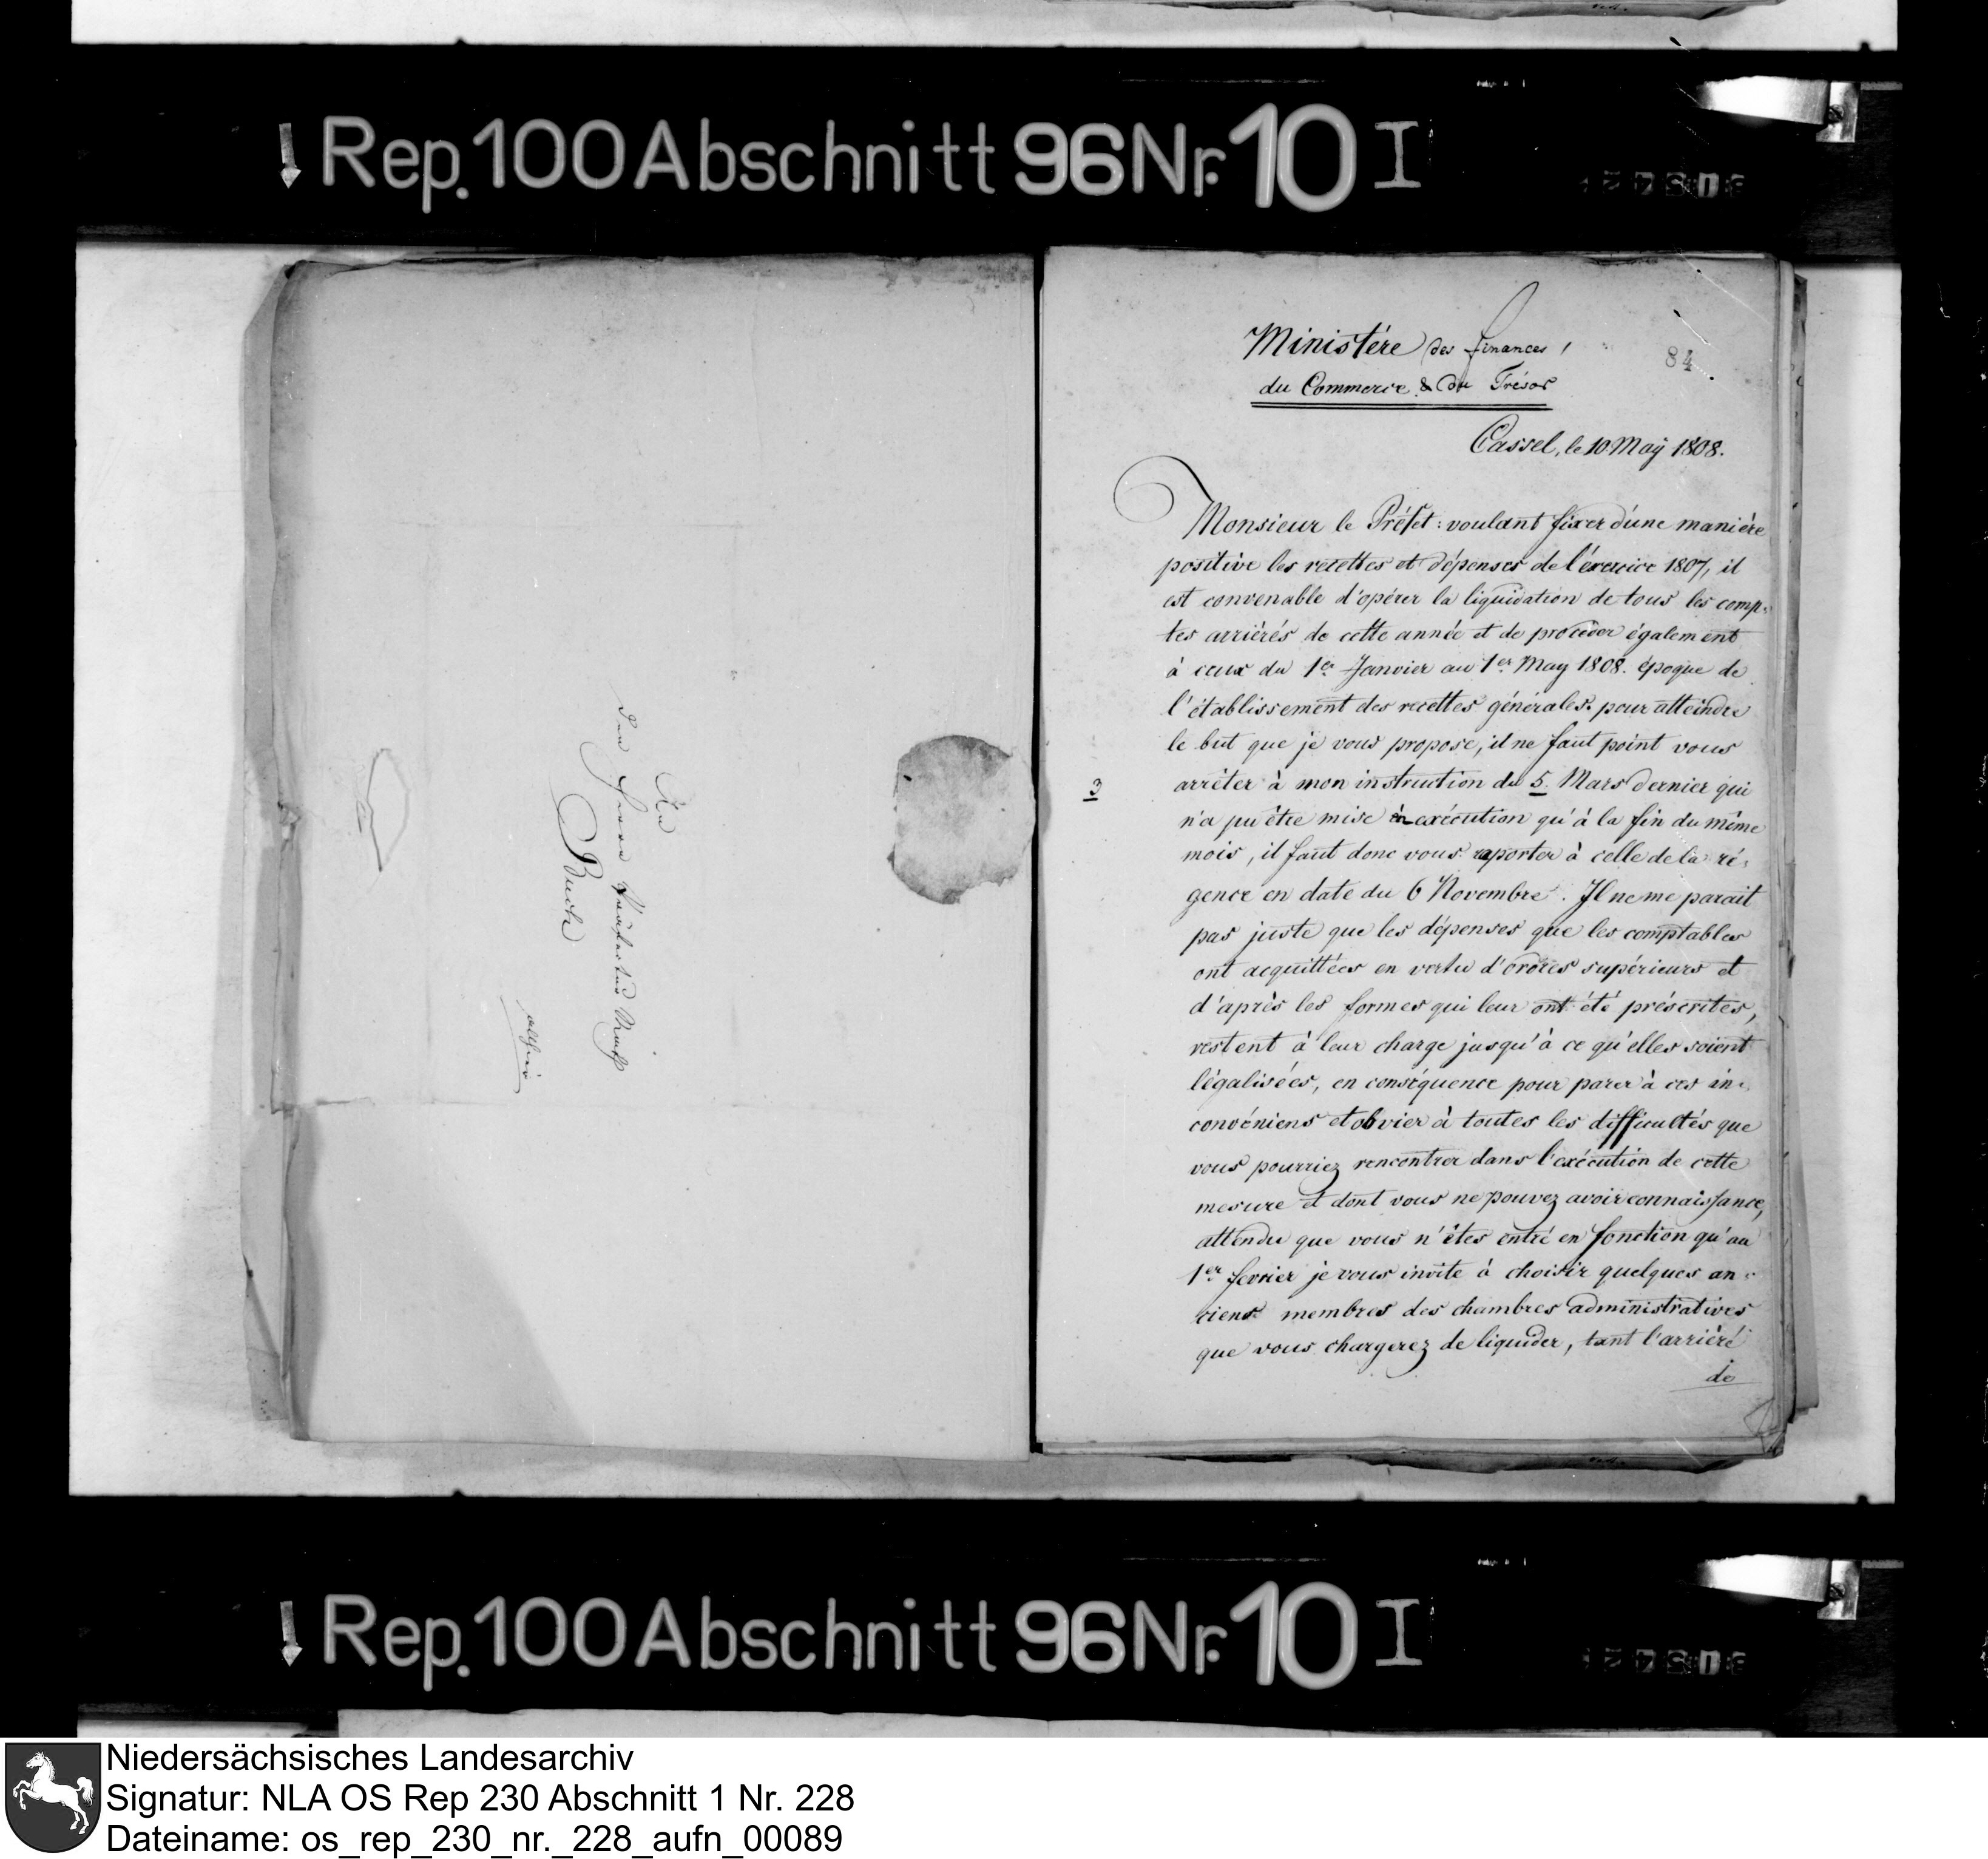 Rep. 100 Abschnitt 96 Nr. 10 I
An
den Herrn
Buch
allhier
84
Ministére des finances,
du Commerce & du Trésor
Cassel, le 10 Maÿ 1808.
Monsieur le Préfet: voulant fixer d'une manière
positive les recettes et dépenses de l'éxercice 1807, il
est convenable d'opérer la liquidation de tous les comp-
tes arriérés de cette année et de procéder également
à ceux du 1er Janvier au 1er May 1808. époque de
l'établissement des recettes générales. pour atteindre
le but que je vous propose, il ne faut point vous
3
arrêter à mon instruction du 5. Mars dernier qui
n'a pu être mise en exécution qu'à la fin du même
mois, il faut donc vous raporter à celle de la ré-
gence en date du 6 Novembre. Il ne me parait
pas juste que les dépenses que les comptables
ont acquittées en vertu d'ordres supérieurs et
d'après les formes qui leur ont été préscrites,
restent à leur charge jusqu'à ce qu'elles soient
légalisées, en conséquence pour parer à ces in-
convéniens et obvier à toutes les difficultés que
vous pourriez rencontrer dans l'exécution de cette
mesure et dont vous ne pouvez avoir connaissance,
attendu que vous n'êtes entré en fonction qu'au
1er fevrier je vous invite à choisir quelques an-
ciens membres des chambres administratives
que vous chargerez de liquider, tant l'arriéré
de
Rep. 100 Abschnitt 96 Nr. 10 I
Niedersächsisches Landesarchiv
Signatur: NLA OS Rep 230 Abschnitt 1 Nr. 228
Dateiname: os_rep_230_nr._228_aufn_00089